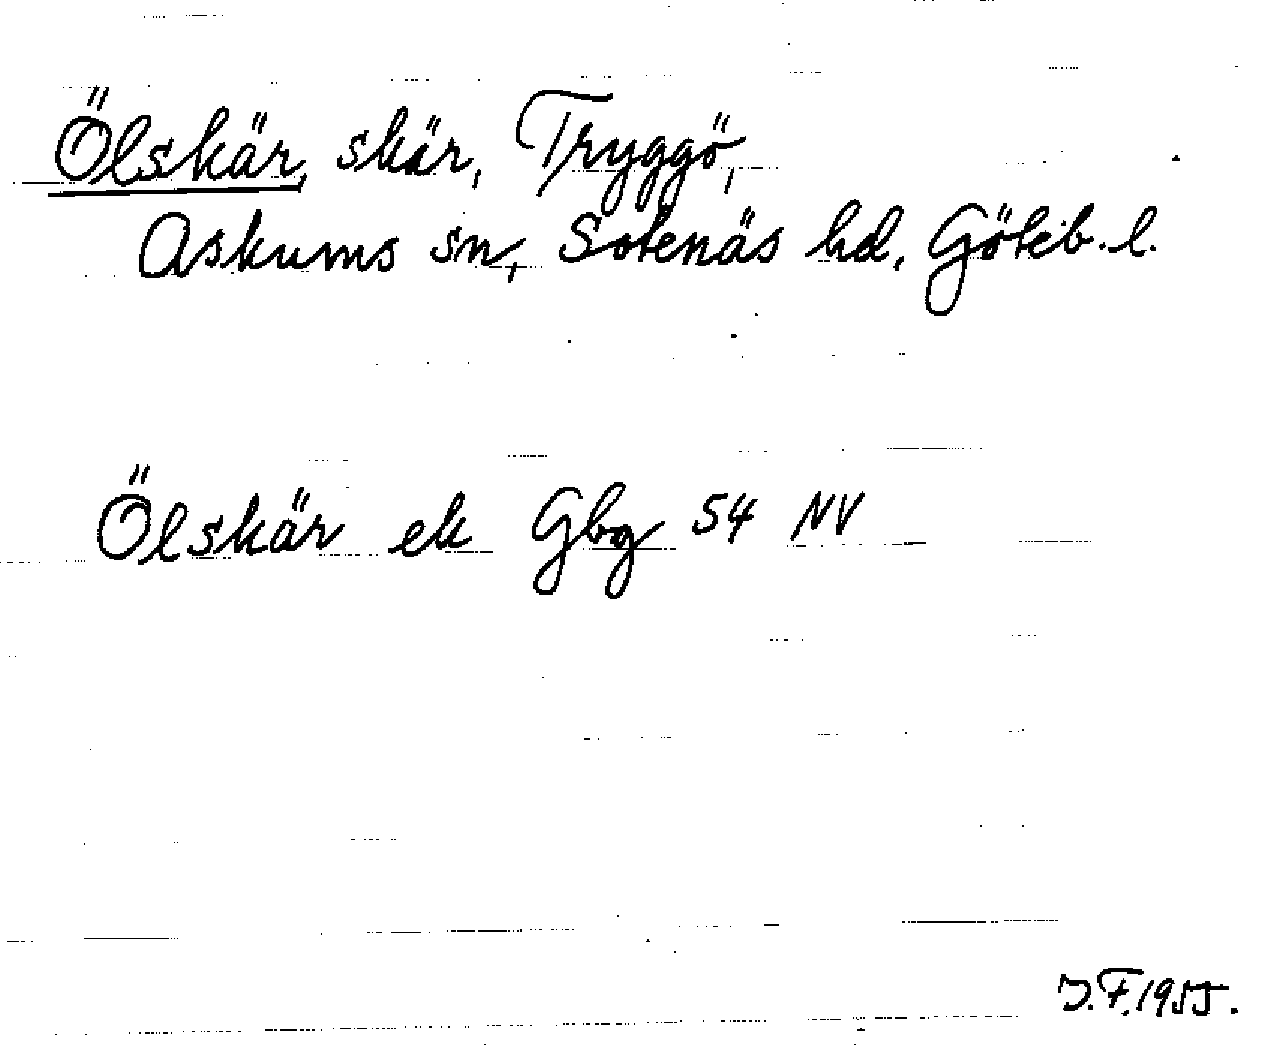 Ölskär, skär, Tryggö,
Askums sn, Sotenäs hd, Göteb. l.
Ölskär ek Gbg 54 NV
J.F. 1955.